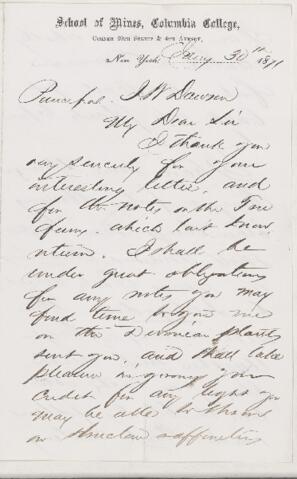 School of Mines, Columbia College,
Corner 49th Street & 4th Avenue,
New York 30th 1871
Principal J W Dawson
My Dear Sir
I thank you
very sincerely for your
interesting letter, and
for the notes on the Tree
ferns, which I
return. I shall be
under great obligations
for any notes you may
find time to give me
on the Devonian plants
sent you, and shall take
pleasure in giving you
credit for any light you
may be able to throw
on affinities